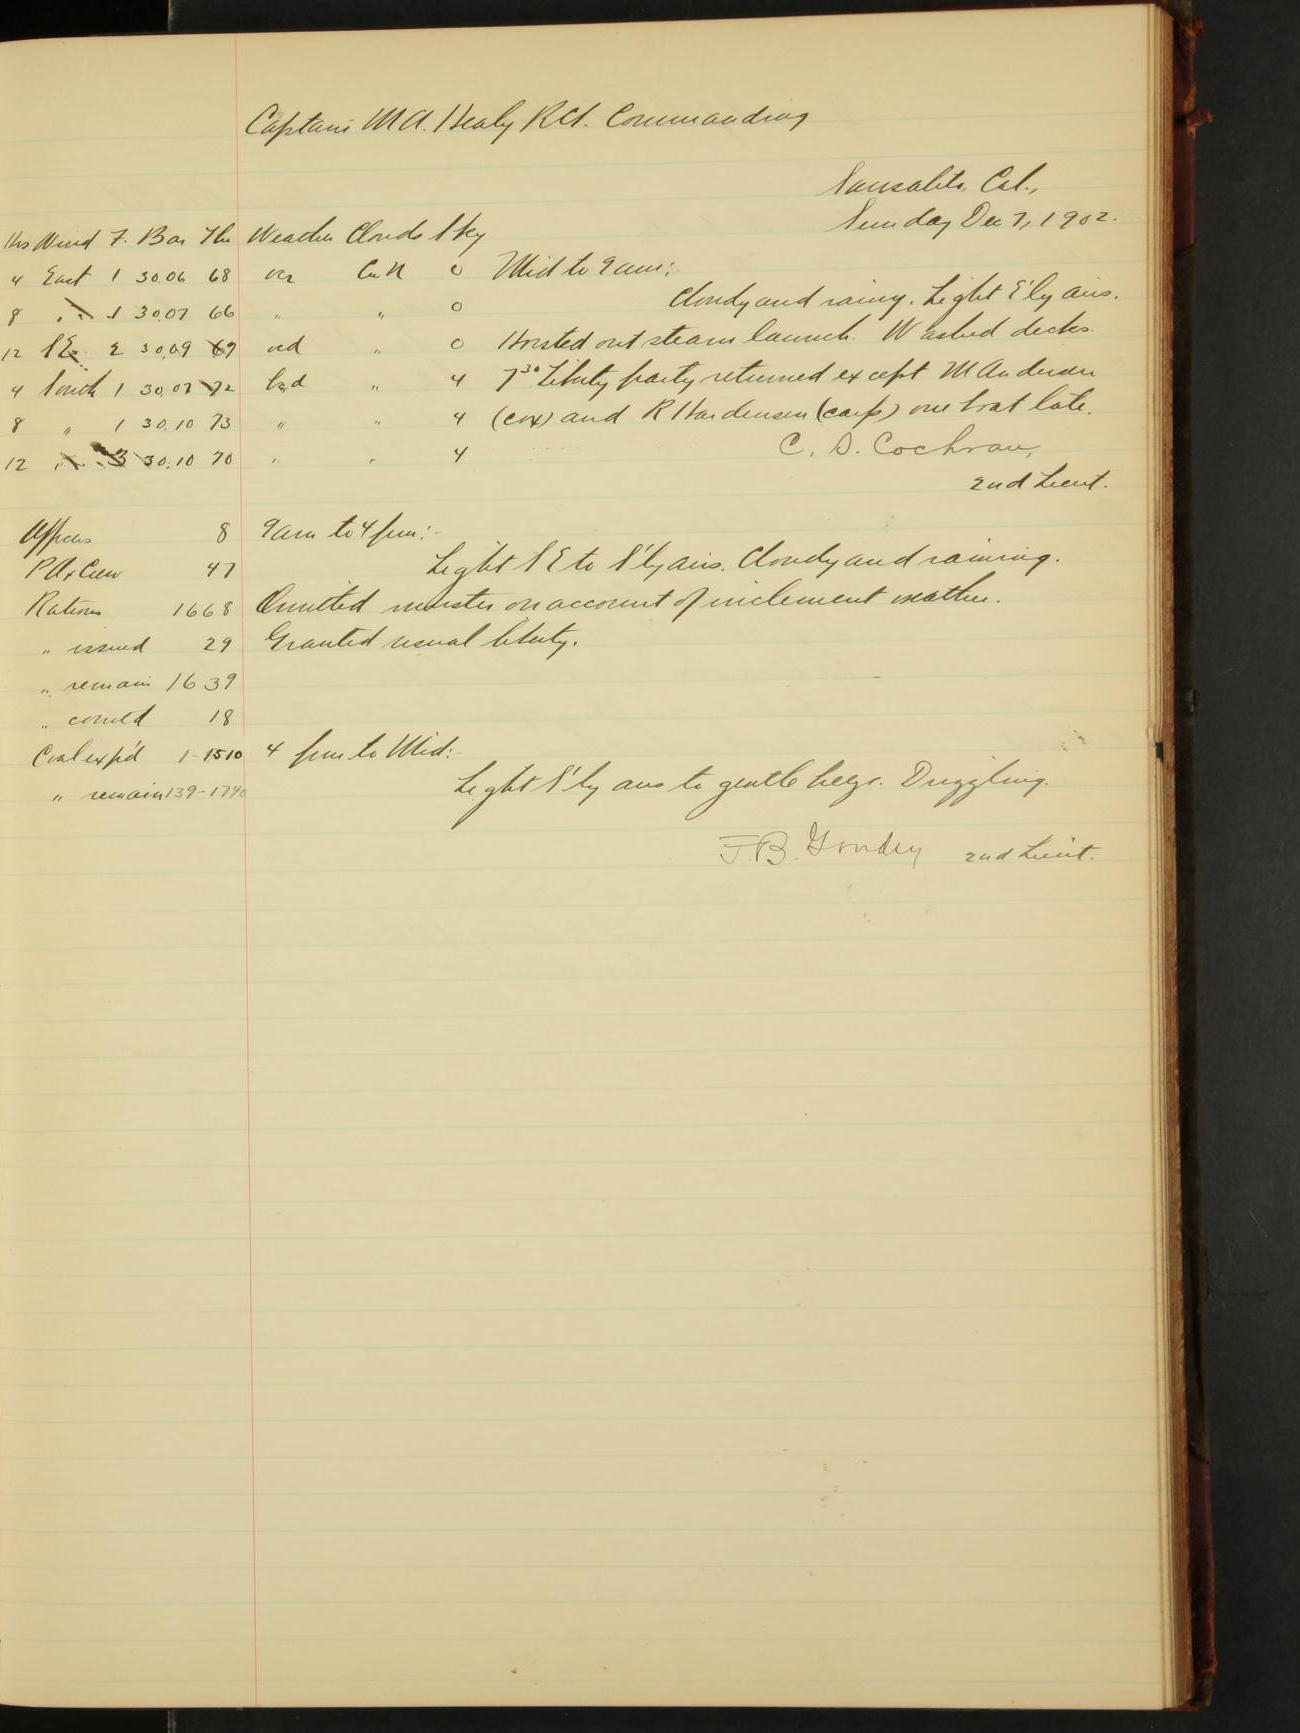 Captain M A. Healy RCS. Commanding
Sausalito, Cal.,
Sunday Dec 7, 1902.
Hrs Wind F. Bar Thr Weather Clouds Sky
4 East 1 30.06 68 ocr CuN 0 Mid to 9 am:
8 " 1 30.07 66 " " 0 Cloudy and rainy. Light E'ly airs.
12 SE 2 30.09 69 ocd " 0 Hoisted out steam launch. Washed decks.
4 South 1 30.07 72 bcd " 4 7 30 Liberty party returned except M Andersen
8 " 1 30.10 73 " " 4 (cox) and R Hardensen (carp) one boat late.
12 " 3 30.10 70 " " 4 C. S. Cochran,
2nd Lieut.
Officers 8 9 am to 4 pm:-
PO & Crew 47 Light SE to S'ly airs. Cloudy and raining.
Rations 1668 Omitted muster on account of inclement weather.
" issued 29 Granted usual liberty.
" remain 1639
" com'td 18
Coal exp'd 1-1510 4 pm to Mid:-
" remain 139-1790 Light S'ly airs to gentle breeze. Drizzling.
J.B. 2nd Lieut.